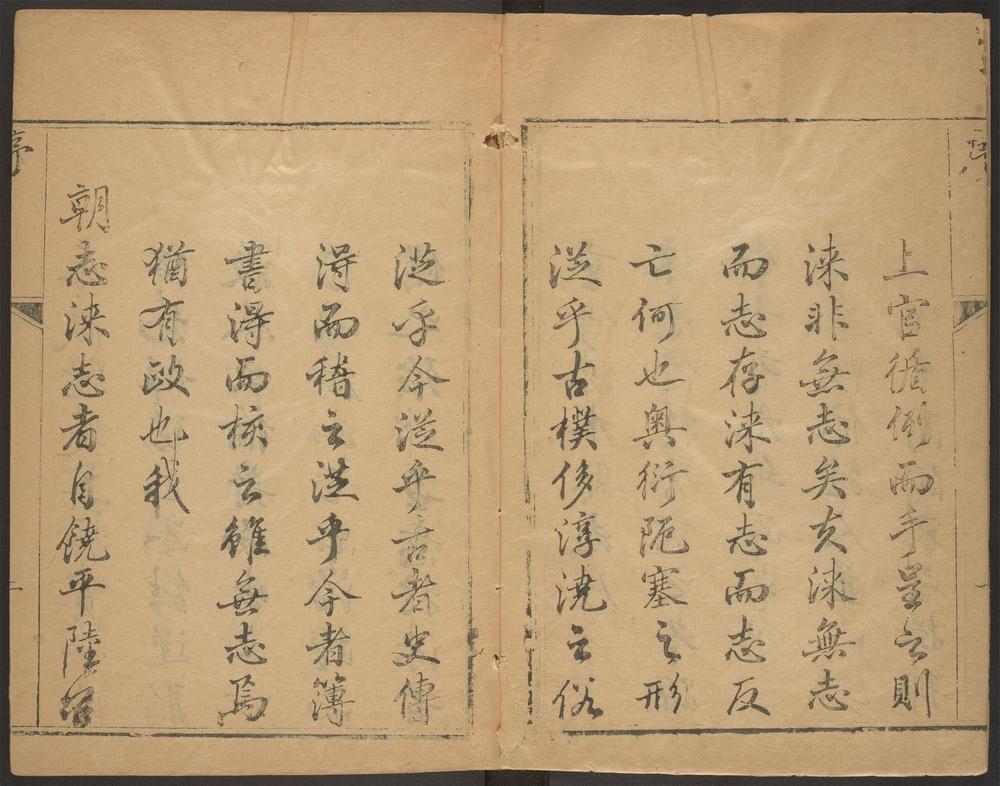 上官循例而手呈之則
涞非無志矣夫涞無志
而志存涞有志而志反
亡何也輿衍阨塞之形
從乎古樸侈淳澆之俗
從乎今從乎古者史傳
得而稽之從乎今者簿
書得而核之雖無志焉
猶有政也我
朝志涞志者自饒平陸公
序